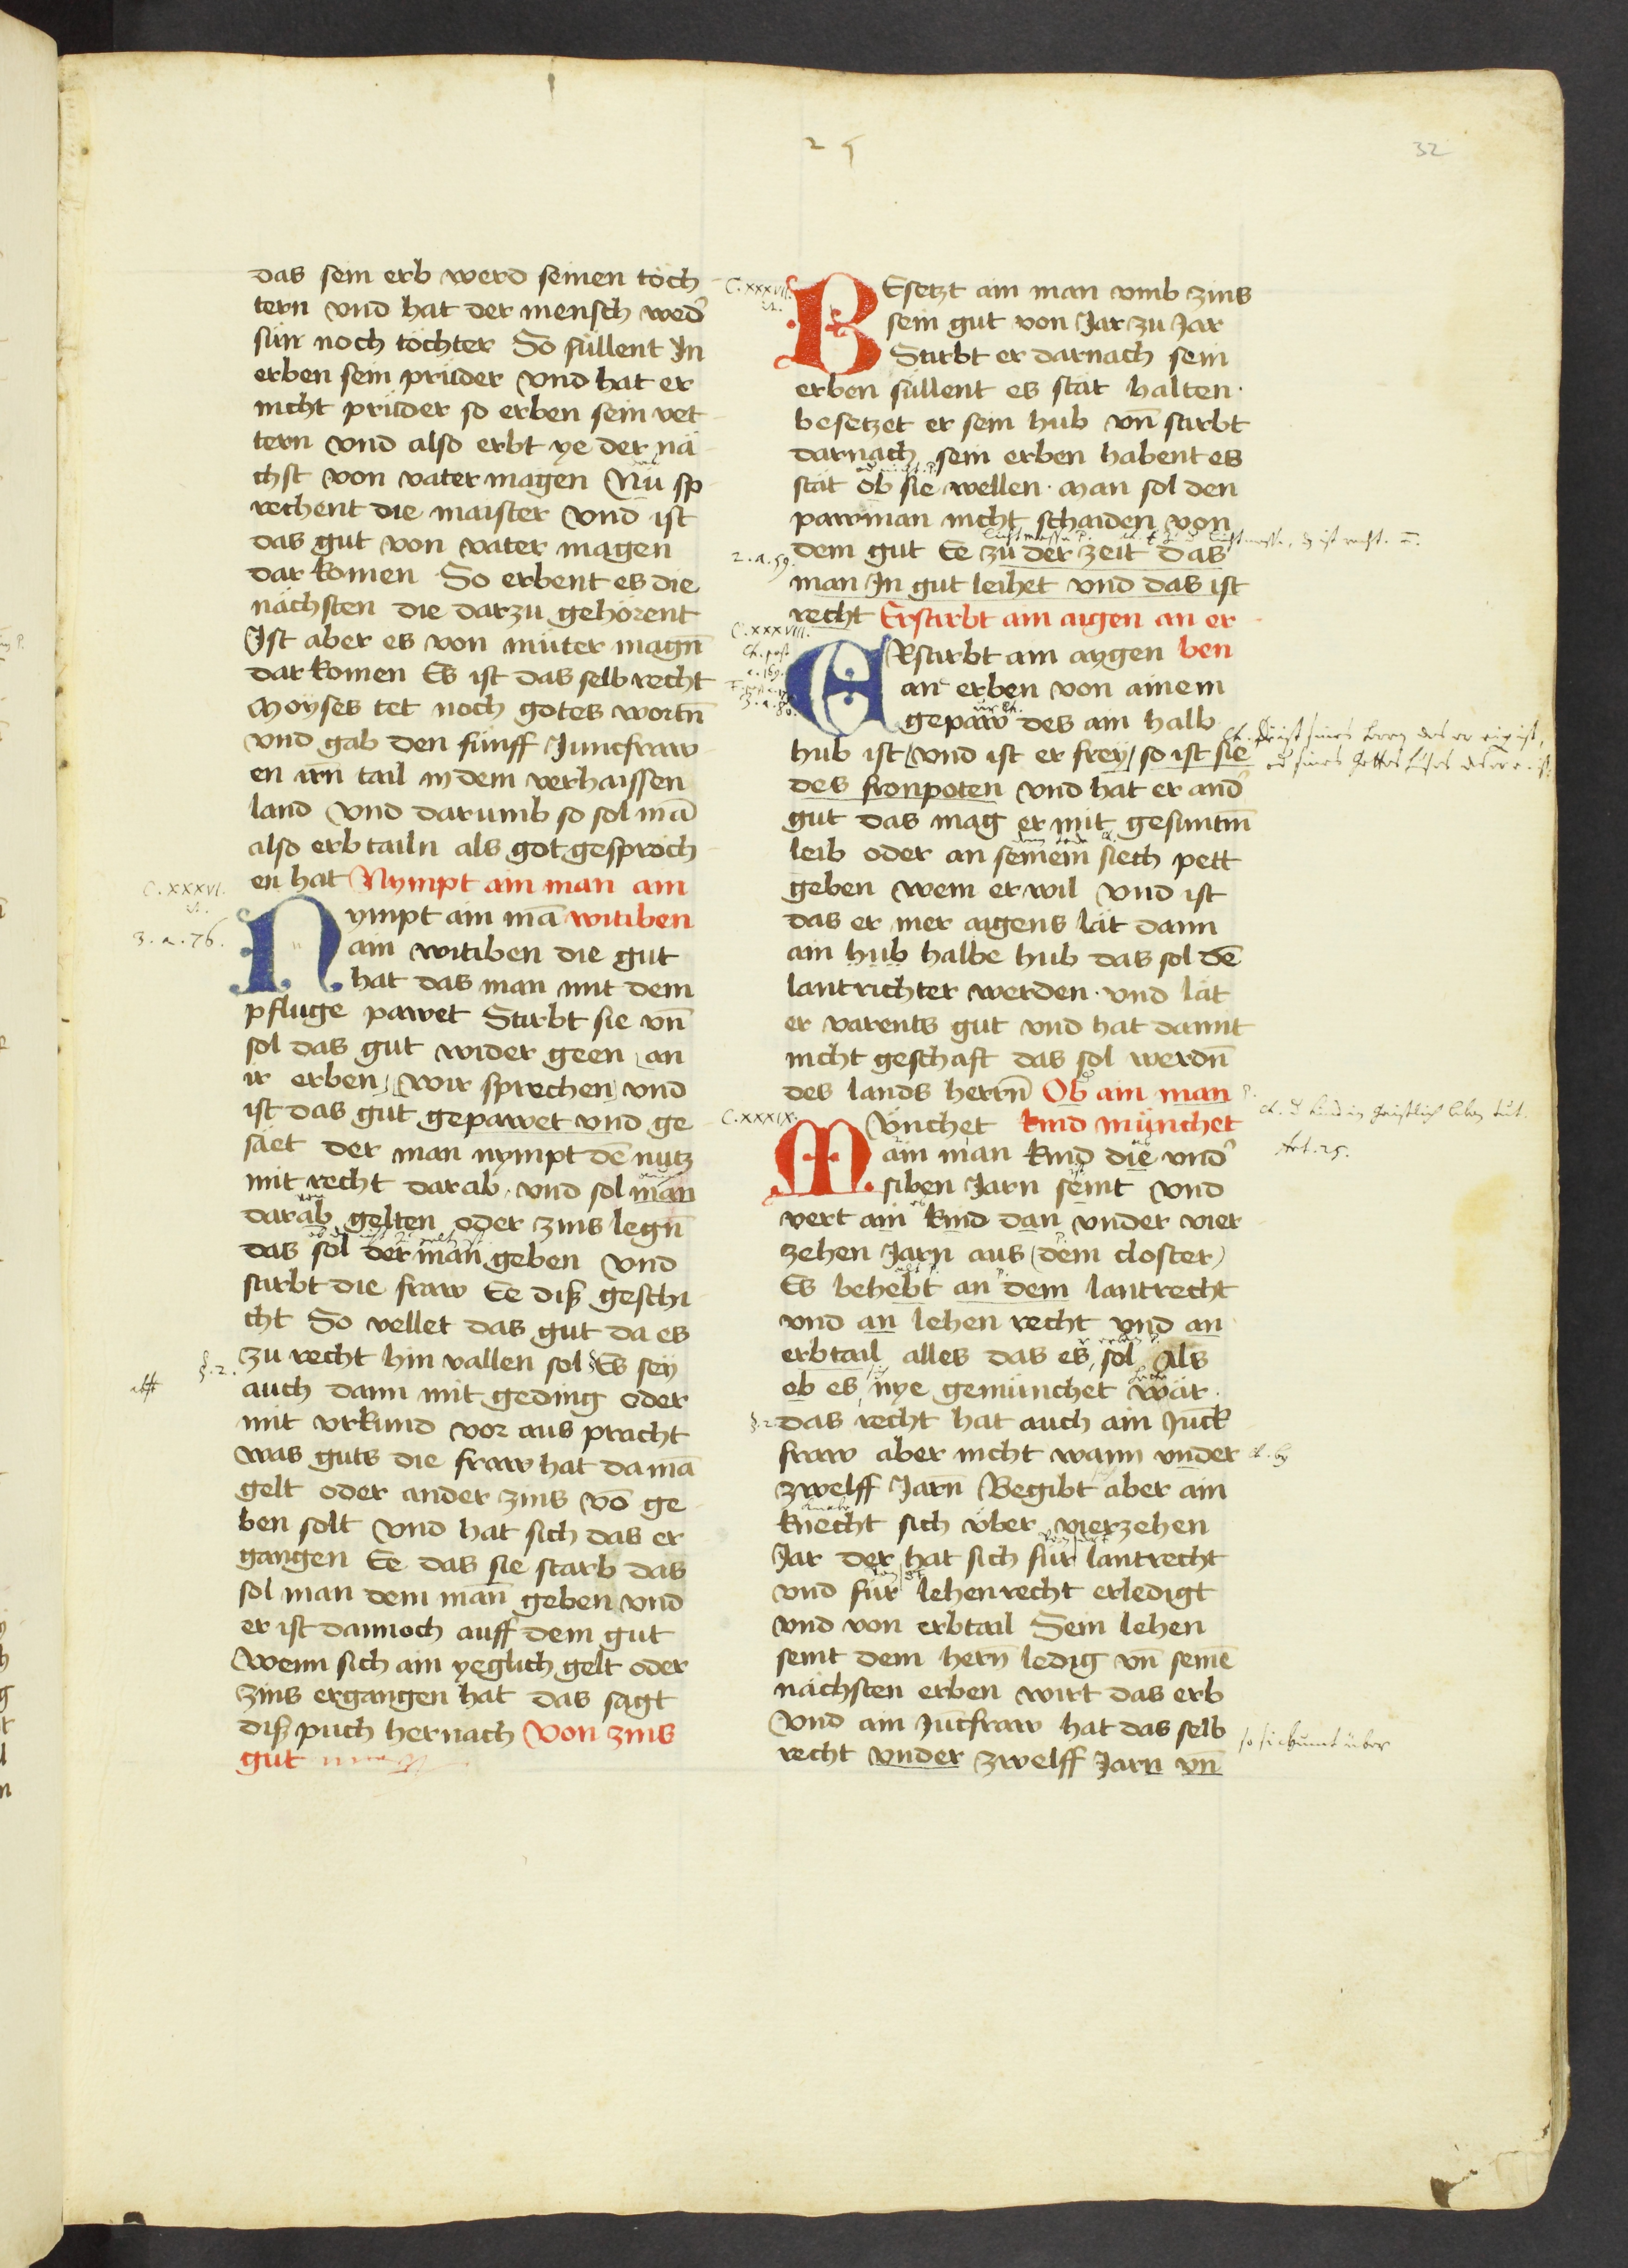 29
32
das sein erb werd seinen töch
tern vnd hat der mensch wed̉
sün noch töchter So süllent In
erben sein prüder vnd hat er
nicht prüder so erben sein vet
tern vnd also erbt ye der nä
chst von vater magen Nu sp
rechent die maister vnd ist
das gut von vater magen
dar komen So erbent es die
nächsten die darzu gehorent
Ist aber es von müter magn̄
dar komen Es ist das selb recht
Moyses tet noch gotes wortn̄
vnd gab den fünff Junckfraw
en irn̄ tail in dem verhaissen
land vnd darumb so sol mā
also erb tailn als got gesproch
en hat Nympt ain man ain
C. xxxvi.
3. a. 76.
Nympt ain mā witiben
ain witiben die gut
hat das man mit dem
pfluge pawet Stirbt sie vn̄
sol das gut wider geen an
ir erben, wir sprechen vnd
ist das gut gepawet vnd ge
säet der man nympt dē nutz
mit recht darab, vnd sol man
darab gelten oder zins legn̄
das sol der man geben vnd
stirbt die fraw Ee diß geschi
cht So vellet das gut da es
§. 2.
zu recht hin vallen sol Es sey
auch dann mit geding oder
mit vrkund vor aus pracht
was guts die fraw hat da mā
gelt oder ander zins vō ge
ben solt vnd hat sich das er
gangen Ee das sie starb das
sol man dem man̄ geben vnd
er ist dannoch auff dem gut
wenn sich ain yeglich gelt oder
zins ergangen hat das sagt
diß puch hernach Von zins
gut
C. xxxvii.
BEsetzt ain man vmb zins
sein gut von Jar zu Jar
Stirbt er darnach sein
erben süllent es stät halten.
besetzet er sein hub vn̄ stirbt
darnach sein erben habent es
stät ob sie wellen. man sol den
pawman nicht schaiden von
2. a. 59.
dem gut Ee zu der zeit das
man In gut leihet vnd das ist
recht Erstirbt ain aigen an er
C. xxxviii.
ERstirbt ain aygen ben
an erben von ainem
gepaw des ain halb
hub ist vnd ist er frey, so ist sie
des fronpoten vnd hat er and̉
gut das mag er mit gesuntm̄
leib oder an seinem siech pett
geben wem er wil vnd ist
das er mer aigens lät dann
ain hub halbe hub das sol dē
lantrichter werden. vnd lät
er varents gut vnd hat damit
nicht geschaft das sol werdn̄
des lands herrn̄ Ob ain man
C. xxxix.
MVnchet kind münchet
ain man kind die vnd̉
Art. 25.
siben Jarn seint vnd
vert ain kind dan vnder vier
zehen Jarn aus (dem closter)
Es behebt an dem lantrecht
vnd an lehen recht vnd an
erbtail alles das es sol Als
ob es nye gemünchet wär.
§. 2.
das recht hat auch ain Juck
fraw aber nicht wann vnder
zwelff Jarn̄ Begibt aber ain
knecht sich vber vierzehen
Jar der hat sich für lantrecht
vnd für lehenrecht erledigt
vnd von erbtail Sein lehen
seint dem hern̄ ledig vn̄ seinē
nächsten erben wirt das erb
Vnd ain Junckfraw hat das selb
recht vnder zwelff Jarn vn̄